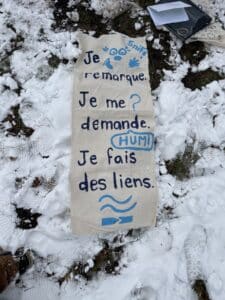 Je
Snif!
remarque.
Je me ?
demande.
HUM!
Je fais
des liens.